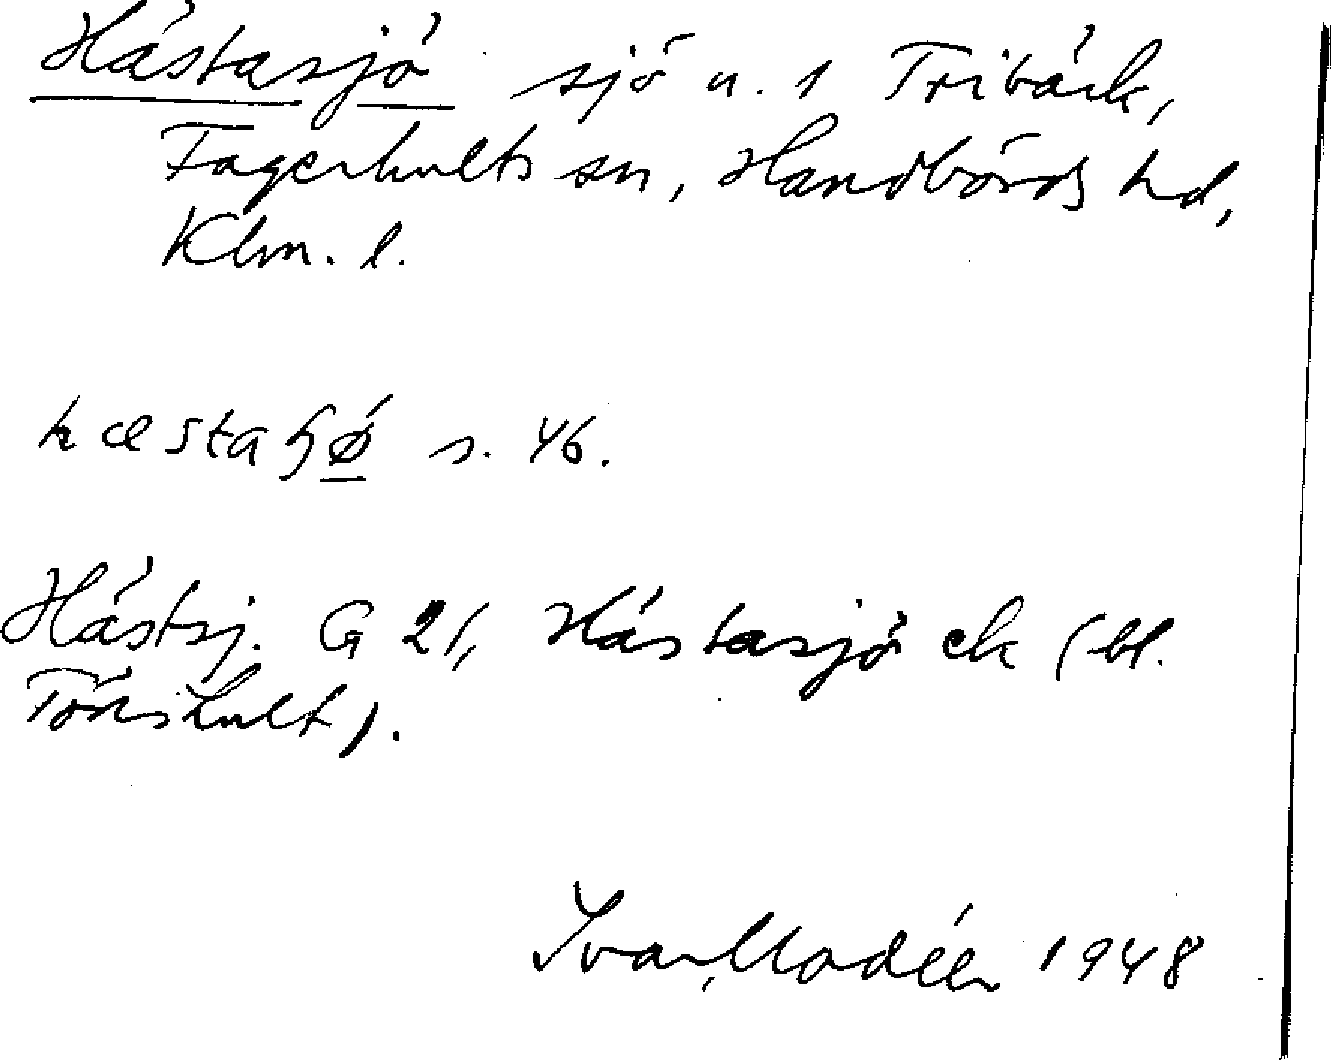 Hästasjö sjö u. 1 Tribäck,
Fagerhults sn, Handbörds hd,
Klm. l.
hæstaɧø s. 46.
Hästsj. G 21, Hästasjö ek (bl.
Fönshult).
Ivar Modéer 1948